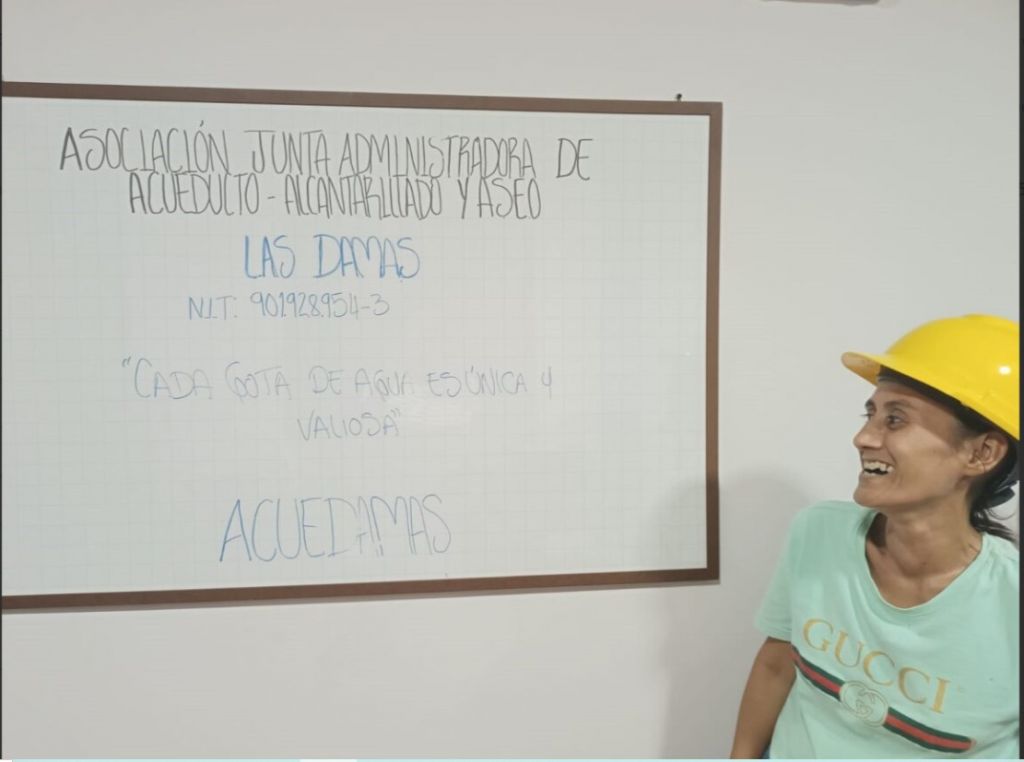 ASOCIACIÓN JUNTA ADMINISTRADORA DE
ACUEDUCTO - ALCANTARILLADO Y ASEO
LAS DAMAS
N.I.T: 901.928.954-3
"CADA GOTA DE AGUA ES ÚNICA Y
VALIOSA"
ACUEDAMAS
GUCCI